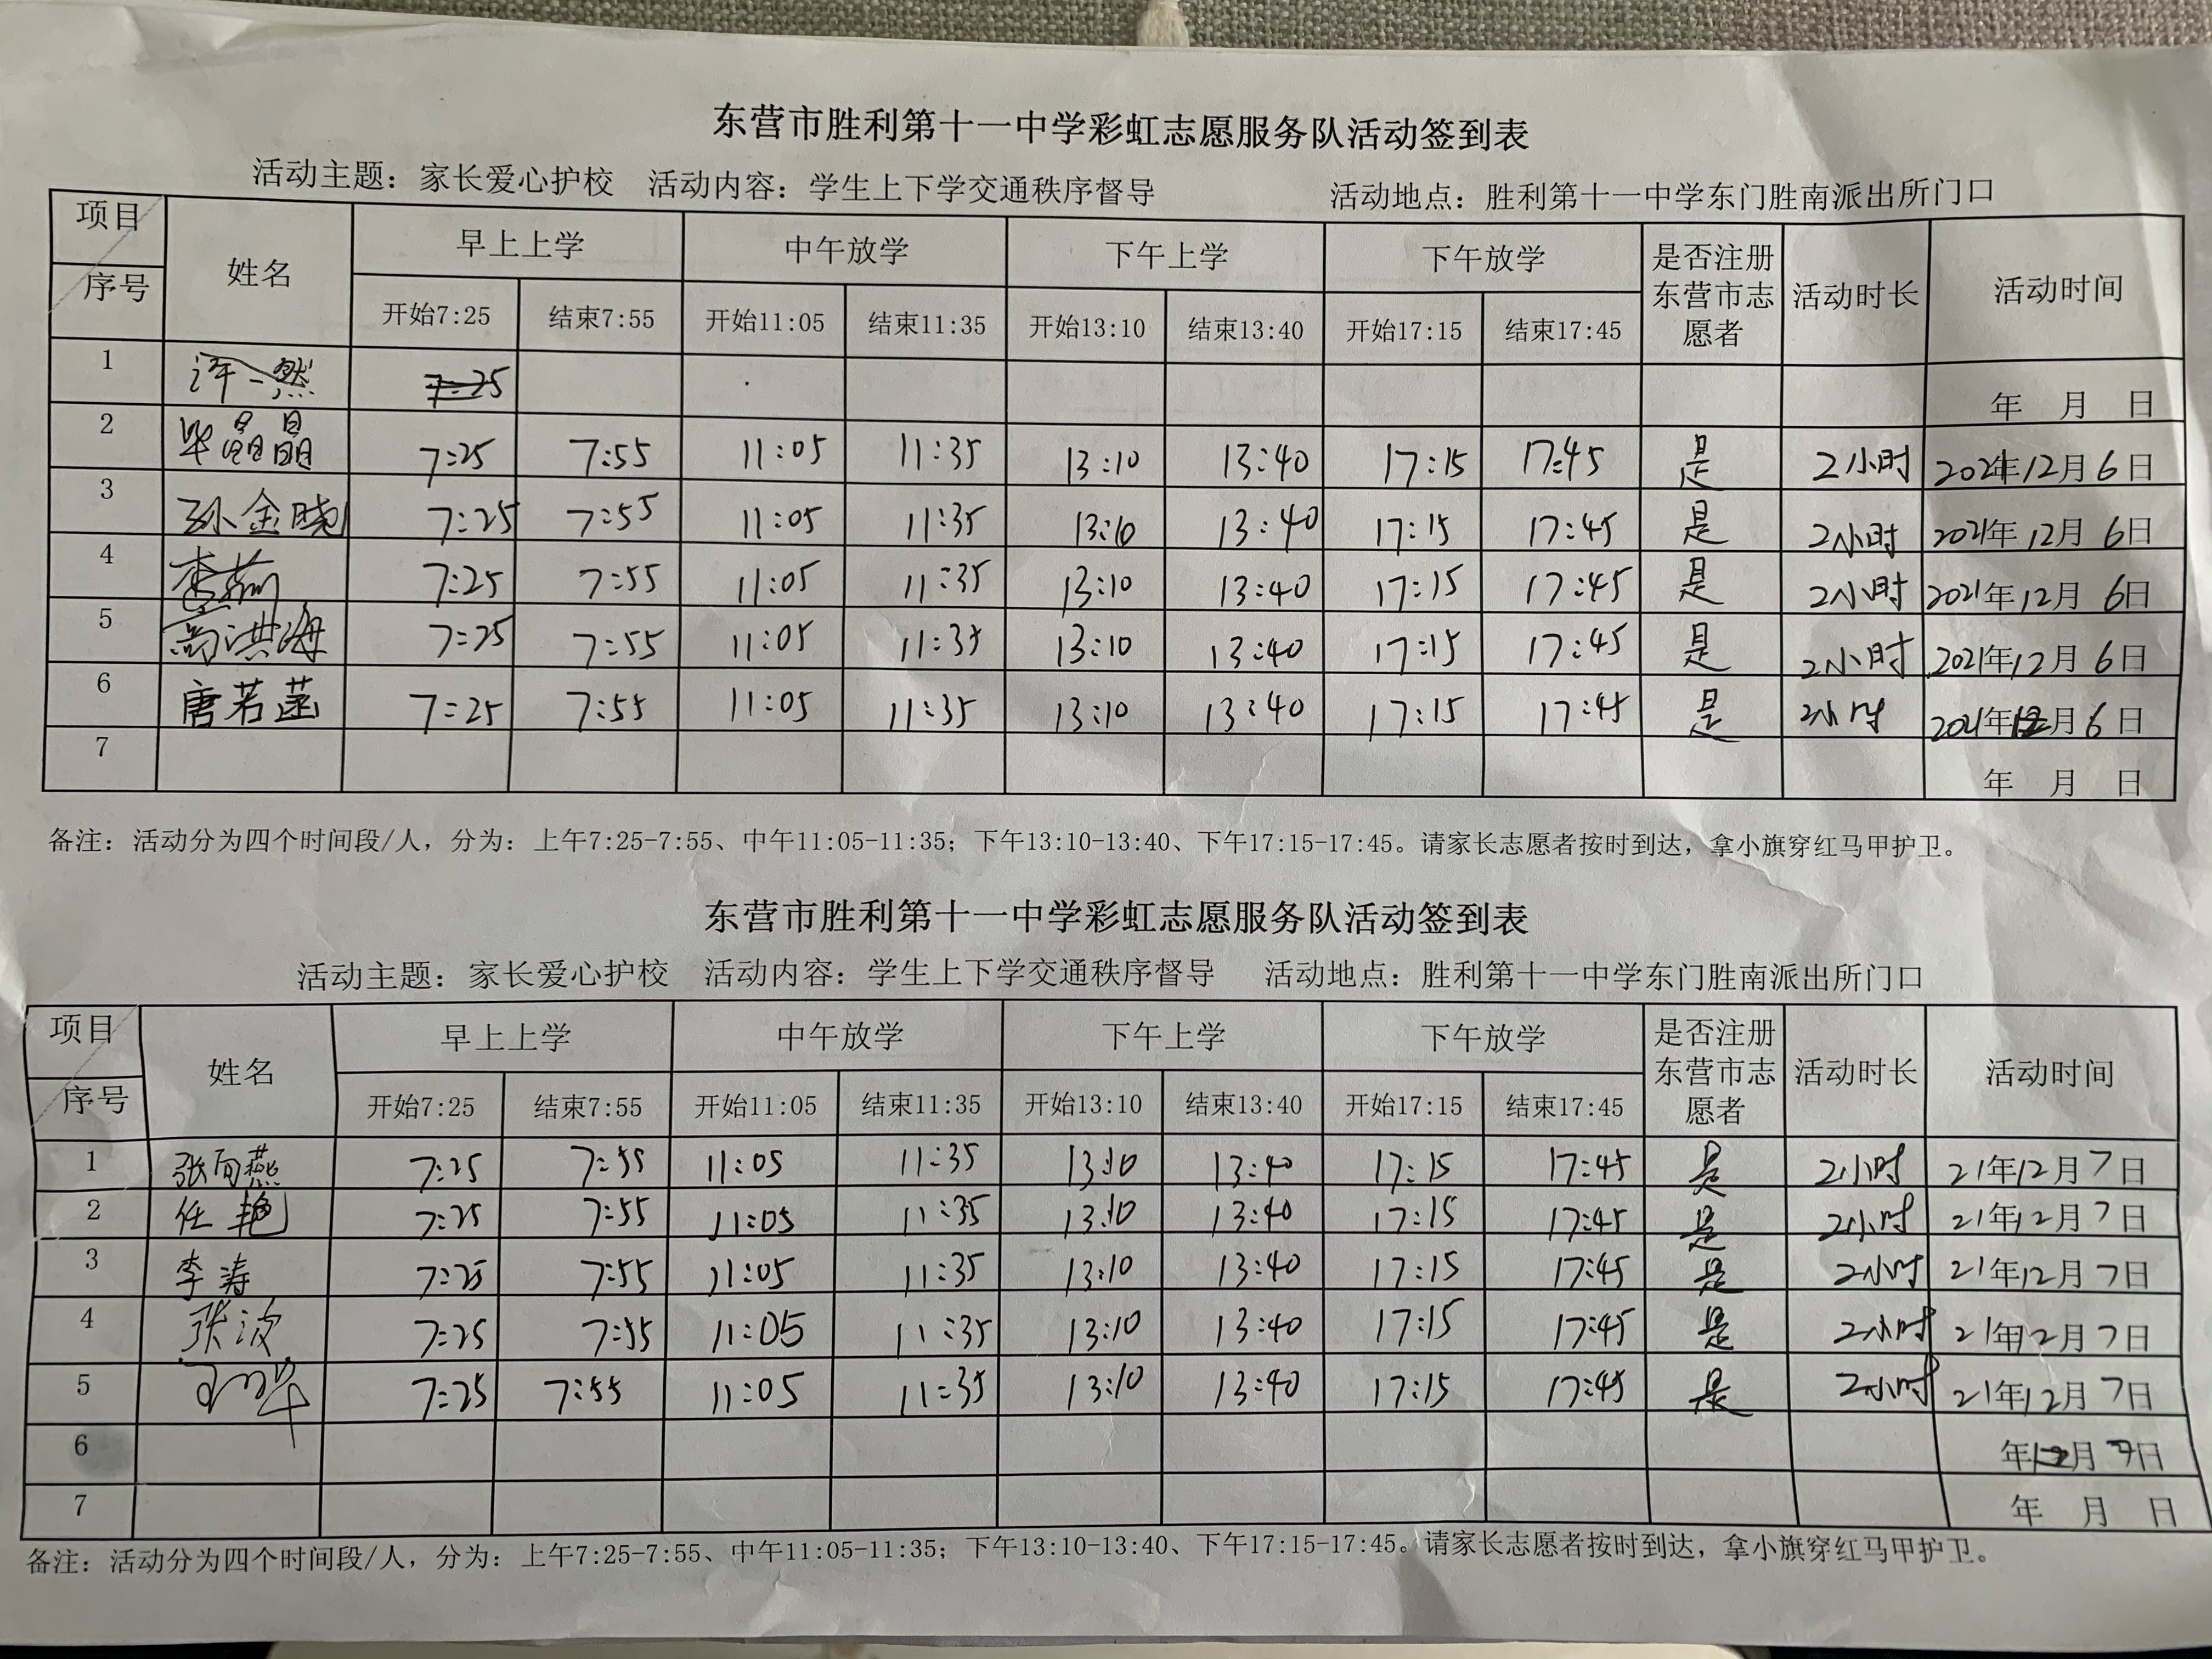 东营市胜利第十一中学彩虹志愿服务队活动签到表
活动主题：家长爱心护校 活动内容：学生上下学交通秩序督导 活动地点：胜利第十一中学东门胜南派出所门口
项目 序号 姓名 早上上学 中午放学 下午上学 下午放学 是否注册东营市志愿者 活动时长 活动时间
开始7:25 结束7:55 开始11:05 结束11:35 开始13:10 结束13:40 开始17:15 结束17:45
1 许一然 7:25 年 月 日
2 毕晶晶 7:25 7:55 11:05 11:35 13:10 13:40 17:15 17:45 是 2小时 2021年12月6日
3 孙金晓 7:25 7:55 11:05 11:35 13:10 13:40 17:15 17:45 是 2小时 2021年12月6日
4 李 7:25 7:55 11:05 11:35 13:10 13:40 17:15 17:45 是 2小时 2021年12月6日
5 高洪海 7:25 7:55 11:05 11:35 13:10 13:40 17:15 17:45 是 2小时 2021年12月6日
6 唐若菡 7:25 7:55 11:05 11:35 13:10 13:40 17:15 17:45 是 2小时 2021年12月6日
7 年 月 日
备注：活动分为四个时间段/人，分为：上午7:25-7:55、中午11:05-11:35；下午13:10-13:40、下午17:15-17:45。请家长志愿者按时到达，拿小旗穿红马甲护卫。
东营市胜利第十一中学彩虹志愿服务队活动签到表
活动主题：家长爱心护校 活动内容：学生上下学交通秩序督导 活动地点：胜利第十一中学东门胜南派出所门口
项目 序号 姓名 早上上学 中午放学 下午上学 下午放学 是否注册东营市志愿者 活动时长 活动时间
开始7:25 结束7:55 开始11:05 结束11:35 开始13:10 结束13:40 开始17:15 结束17:45
1 张向燕 7:25 7:55 11:05 11:35 13:10 13:40 17:15 17:45 是 2小时 21年12月7日
2 任艳 7:25 7:55 11:05 11:35 13:10 13:40 17:15 17:45 是 2小时 21年12月7日
3 李涛 7:25 7:55 11:05 11:35 13:10 13:40 17:15 17:45 是 2小时 21年12月7日
4 张波 7:25 7:55 11:05 11:35 13:10 13:40 17:15 17:45 是 2小时 21年12月7日
5 7:25 7:55 11:05 11:35 13:10 13:40 17:15 17:45 是 2小时 21年12月7日
6 年12月7日
7 年 月 日
备注：活动分为四个时间段/人，分为：上午7:25-7:55、中午11:05-11:35；下午13:10-13:40、下午17:15-17:45。请家长志愿者按时到达，拿小旗穿红马甲护卫。